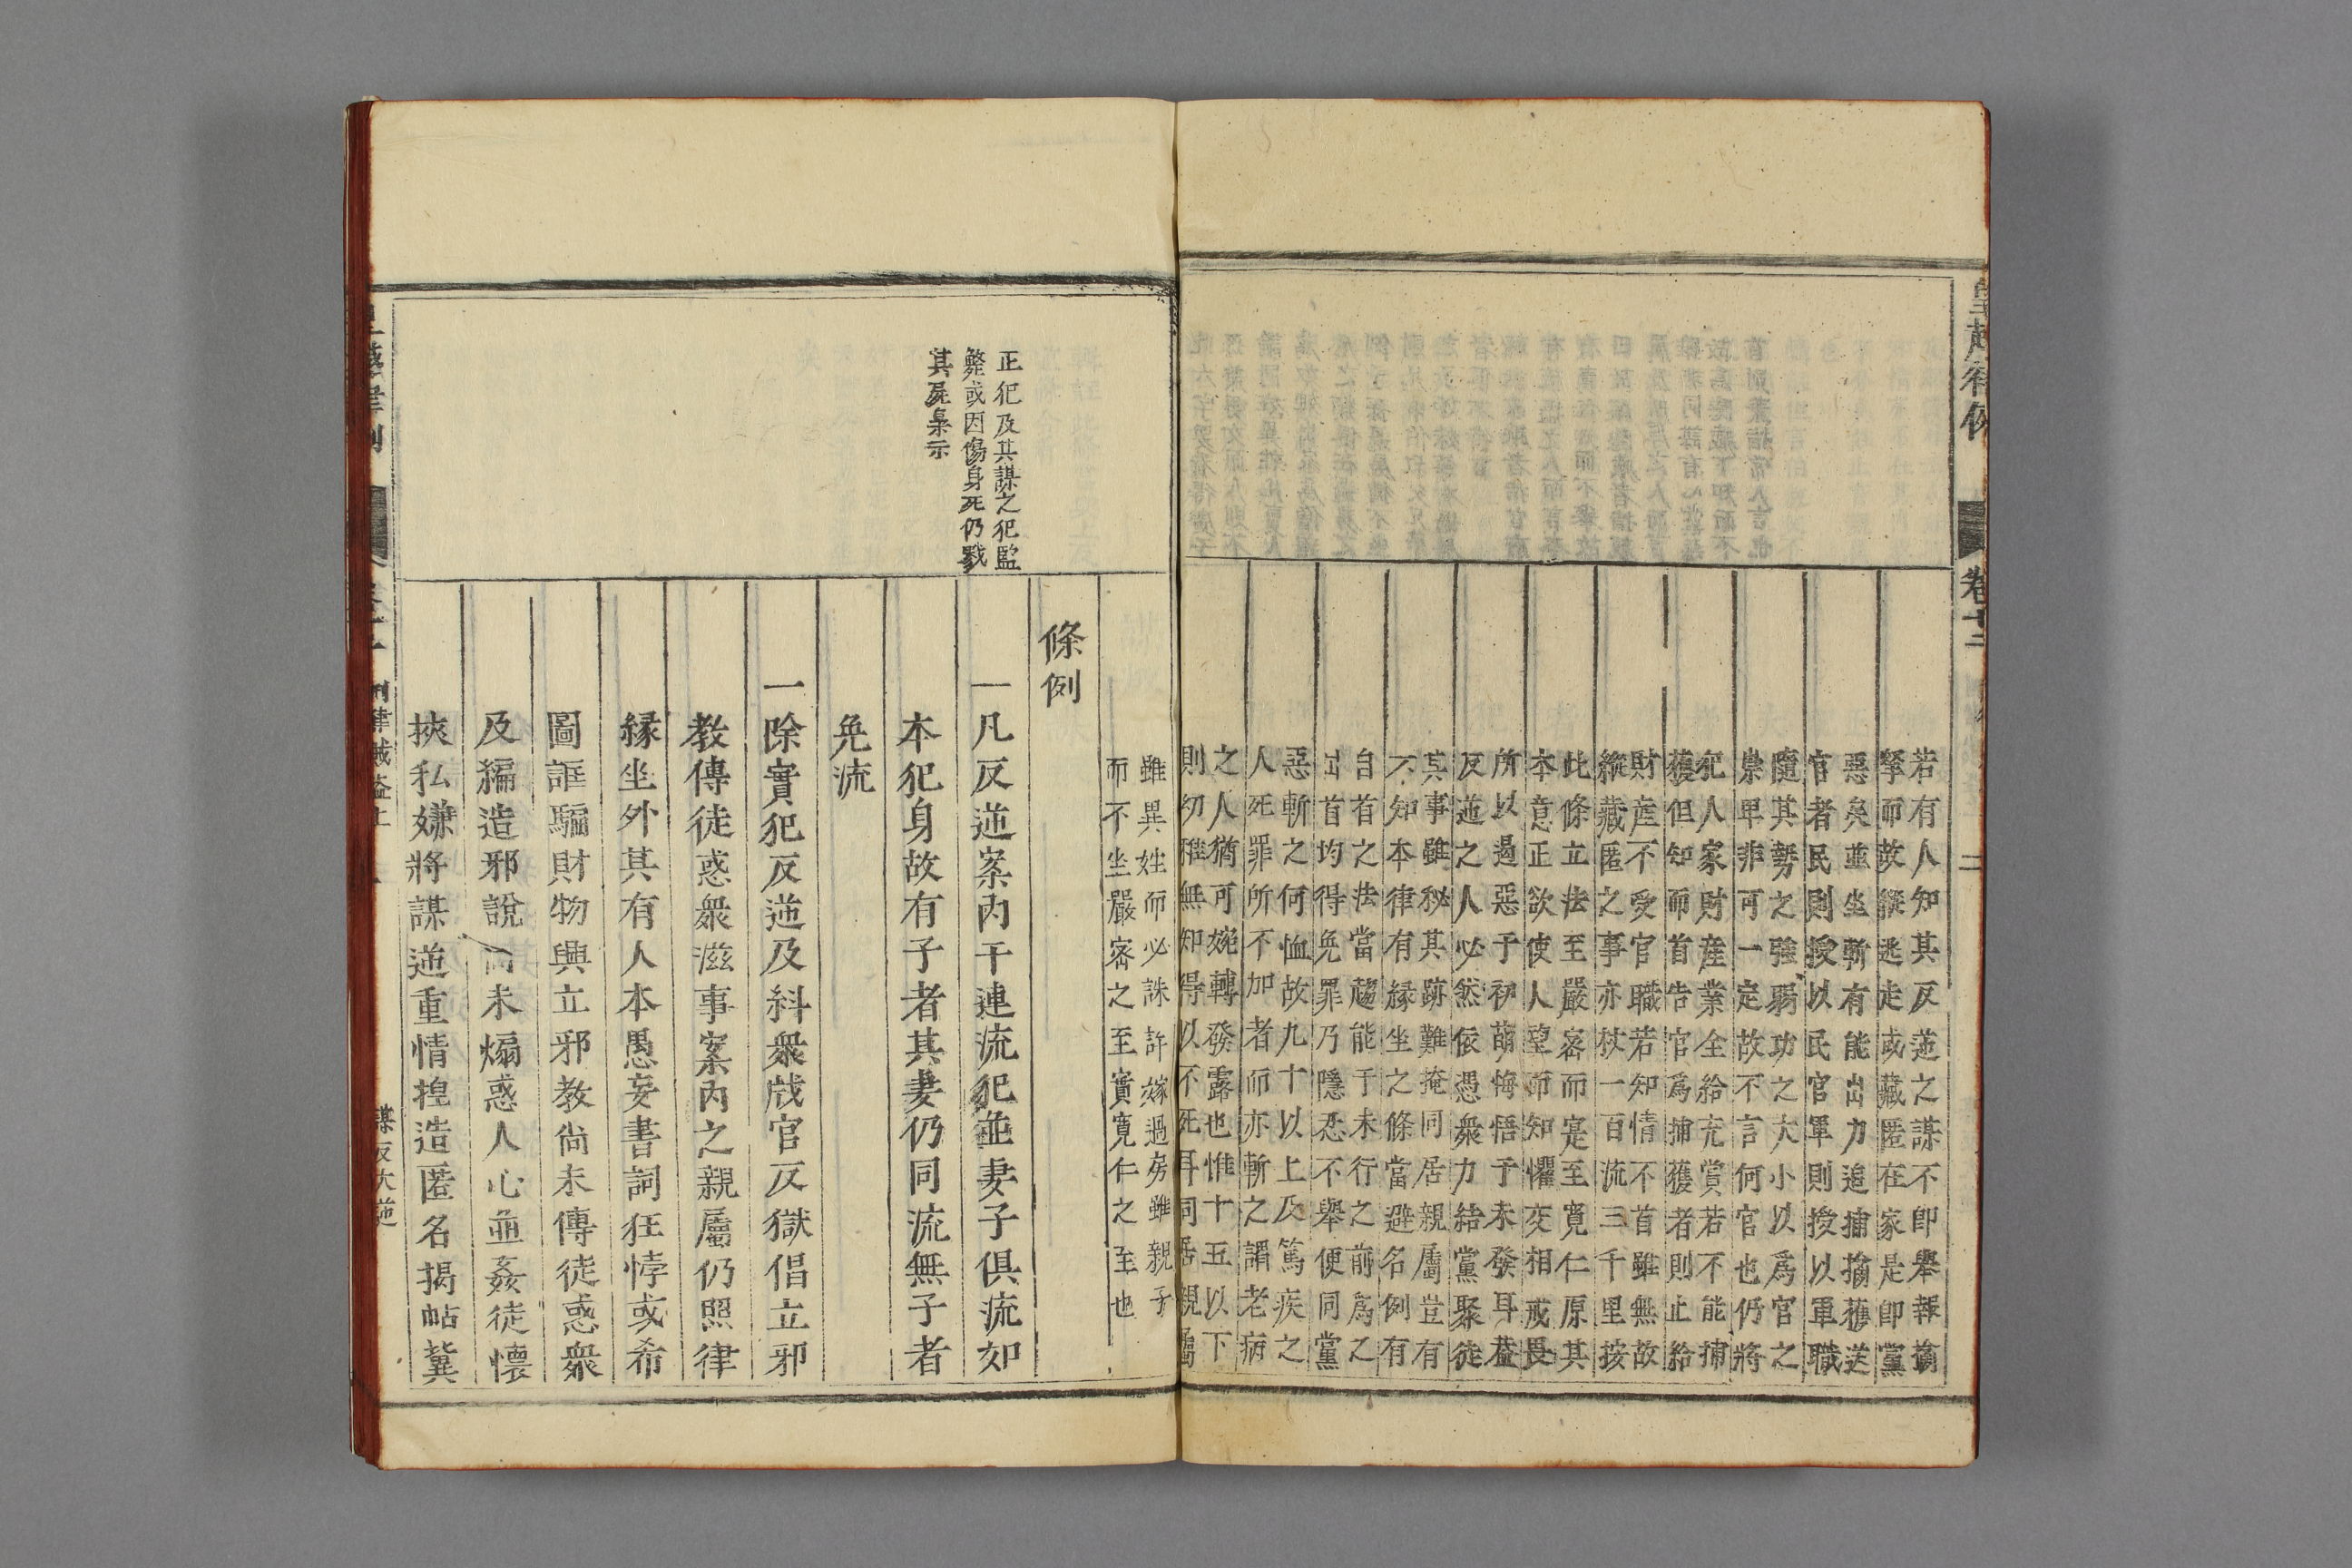 皇越律例
卷十二
二
若有人知其反逆之謀不卽舉報擒
拏而故縱逃走或藏匿在家是卽黨
惡矣並坐斬有能出力追捕擒獲送
官者民則授以民官軍則授以軍職
隨其勢之強弱功之大小以爲官之
崇卑非可一定故不言何官也仍將
犯人家財産業全給充賞若不能捕
獲但知而首告官爲捕獲者則止給
財産不受官職若知情不首雖無故
縱藏匿之事亦杖一百流三千里按
此條立法至嚴宻而寔至寬仁原其
本意正欲使人望而知懼交相戒畏
所以遏惡于初萌悔悟于未發耳葢
反逆之人必然依憑衆力結黨聚徒
其事雖秘其跡難掩同居親屬豈有
不知本律有緣坐之條當避名例有
自首之法當趨能于未行之前爲之
出首均得免罪乃隱忍不舉便同黨
惡斬之何恤故九十以上及篤疾之
人死罪所不加者而亦斬之謂老病
之人猶可婉轉發露也惟十五以下
則幼稚無知得以不死耳同居親屬
雖異姓而必誅許嫁過房雖親子
而不坐嚴宻之至實寬仁之至也
條例
正犯及其謀之犯監
斃或因傷身死仍戮
其屍梟示
一凡反逆案內干連流犯並妻子俱流如
本犯身故有子者其妻仍同流無子者
免流
一除實犯反逆及糾衆戕官反獄倡立邪
教傳徒惑衆滋事案內之親屬仍照律
緣坐外其有人本愚妄書詞狂悖或希
圖誆騙財物興立邪教尙未傳徒惑衆
及編造邪說尚未煽惑人心並姦徒懷
挾私嫌將謀逆重情揑造匿名揭帖冀
刑律賊盜上
謀反大逆